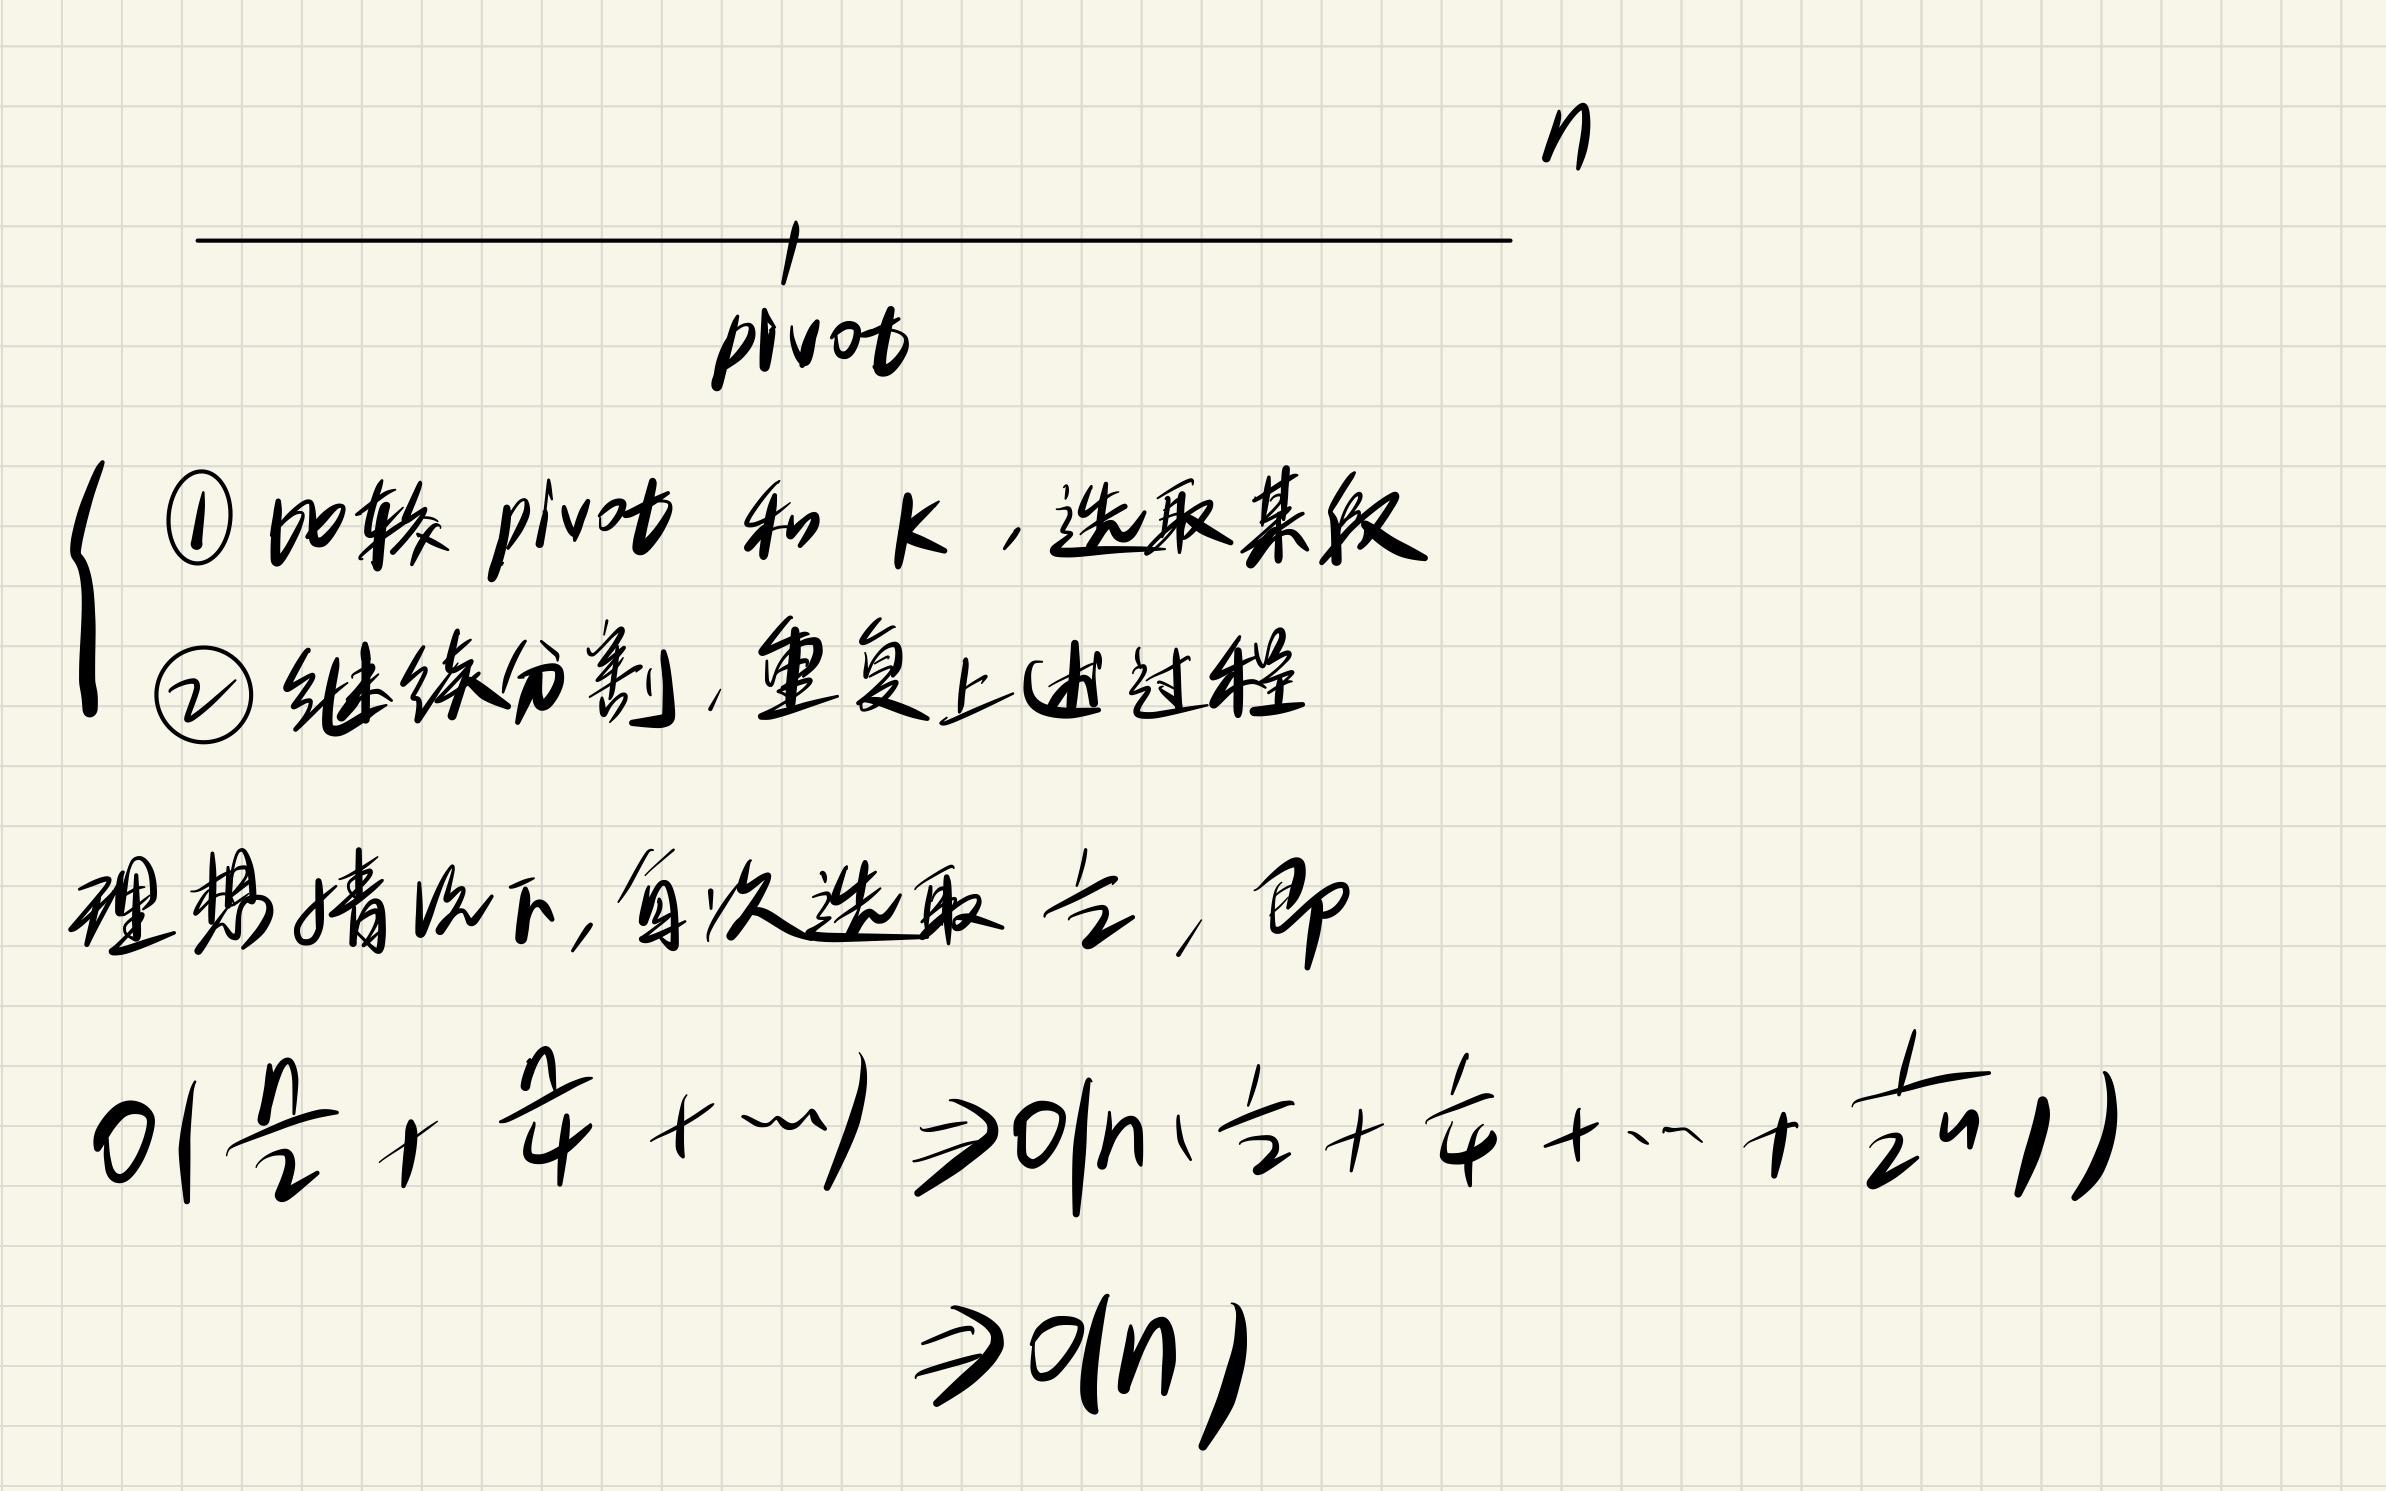 n
pivot
① 比较 pivot 和 K，选取某段
② 继续分割，重复上述过程
理想情况下，每次选取 1/2，即
O(n/2 + n/4 + ……) ⇒ O(n(1/2 + 1/4 + …… + 1/2^n))
⇒ O(n)